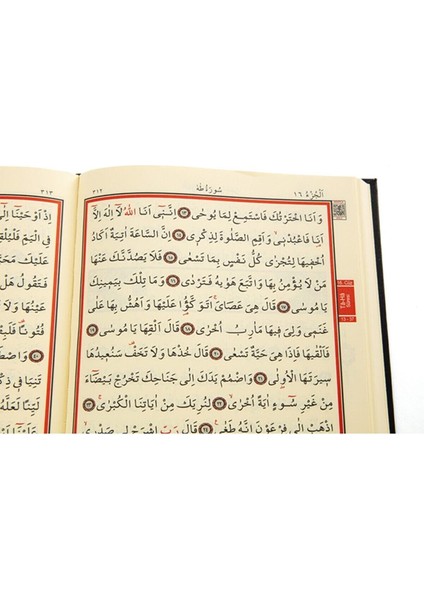 اَلْجُزْءُ ١٦
سُورَةُ طٰهٰ
٣١٢
وَاَنَا اخْتَرْتُكَ فَاسْتَمِعْ لِمَا يُوحٰى ﴿١٣﴾ اِنَّـنٓى اَنَا اللّٰهُ لَٓا اِلٰهَ اِلَّٓا
اَنَا فَاعْبُدْنٖى وَاَقِمِ الصَّلٰوةَ لِذِكْرٖى ﴿١٤﴾ اِنَّ السَّاعَةَ اٰتِيَةٌ اَكَادُ
اُخْفٖيهَا لِتُجْزٰى كُلُّ نَفْسٍ بِمَا تَسْعٰى ﴿١٥﴾ فَلَا يَصُدَّنَّكَ عَنْهَا
مَنْ لَا يُؤْمِنُ بِهَا وَاتَّبَعَ هَوٰيهُ فَتَرْدٰى ﴿١٦﴾ وَمَا تِلْكَ بِيَمٖينِكَ
يَا مُوسٰى ﴿١٧﴾ قَالَ هِىَ عَصَاىَ اَتَوَكَّؤُا عَلَيْهَا وَاَهُشُّ بِهَا عَلٰى
غَنَمٖى وَلِىَ فٖيهَا مَاٰرِبُ اُخْرٰى ﴿١٨﴾ قَالَ اَلْقِهَا يَا مُوسٰى ﴿١٩﴾
فَاَلْقٰيهَا فَاِذَا هِىَ حَيَّةٌ تَسْعٰى ﴿٢٠﴾ قَالَ خُذْهَا وَلَا تَخَفْ سَنُعٖيدُهَا
سٖيرَتَهَا الْاُو۫لٰى ﴿٢١﴾ وَاضْمُمْ يَدَكَ اِلٰى جَنَاحِكَ تَخْرُجْ بَيْضَٓاءَ
مِنْ غَيْرِ سُٓوءٍ اٰيَةً اُخْرٰى ﴿٢٢﴾ لِنُرِيَكَ مِنْ اٰيَاتِنَا الْكُبْرٰى ﴿٢٣﴾
اِذْهَبْ اِلٰى فِرْعَوْنَ اِنَّهُ طَغٰى ﴿٢٤﴾ قَالَ رَبِّ اشْرَحْ لٖى صَدْرٖى
Tâ-Hâ
٣١٣
اِذْ اَوْحَيْنَٓا اِلٰٓى
فِى الْيَمِّ فَلْيُلْقِهِ
عَلَيْكَ مَحَ
فَتَقُولُ هَلْ
عَيْنُهَا وَلَا
فُتُونًا فَلَبِثْ